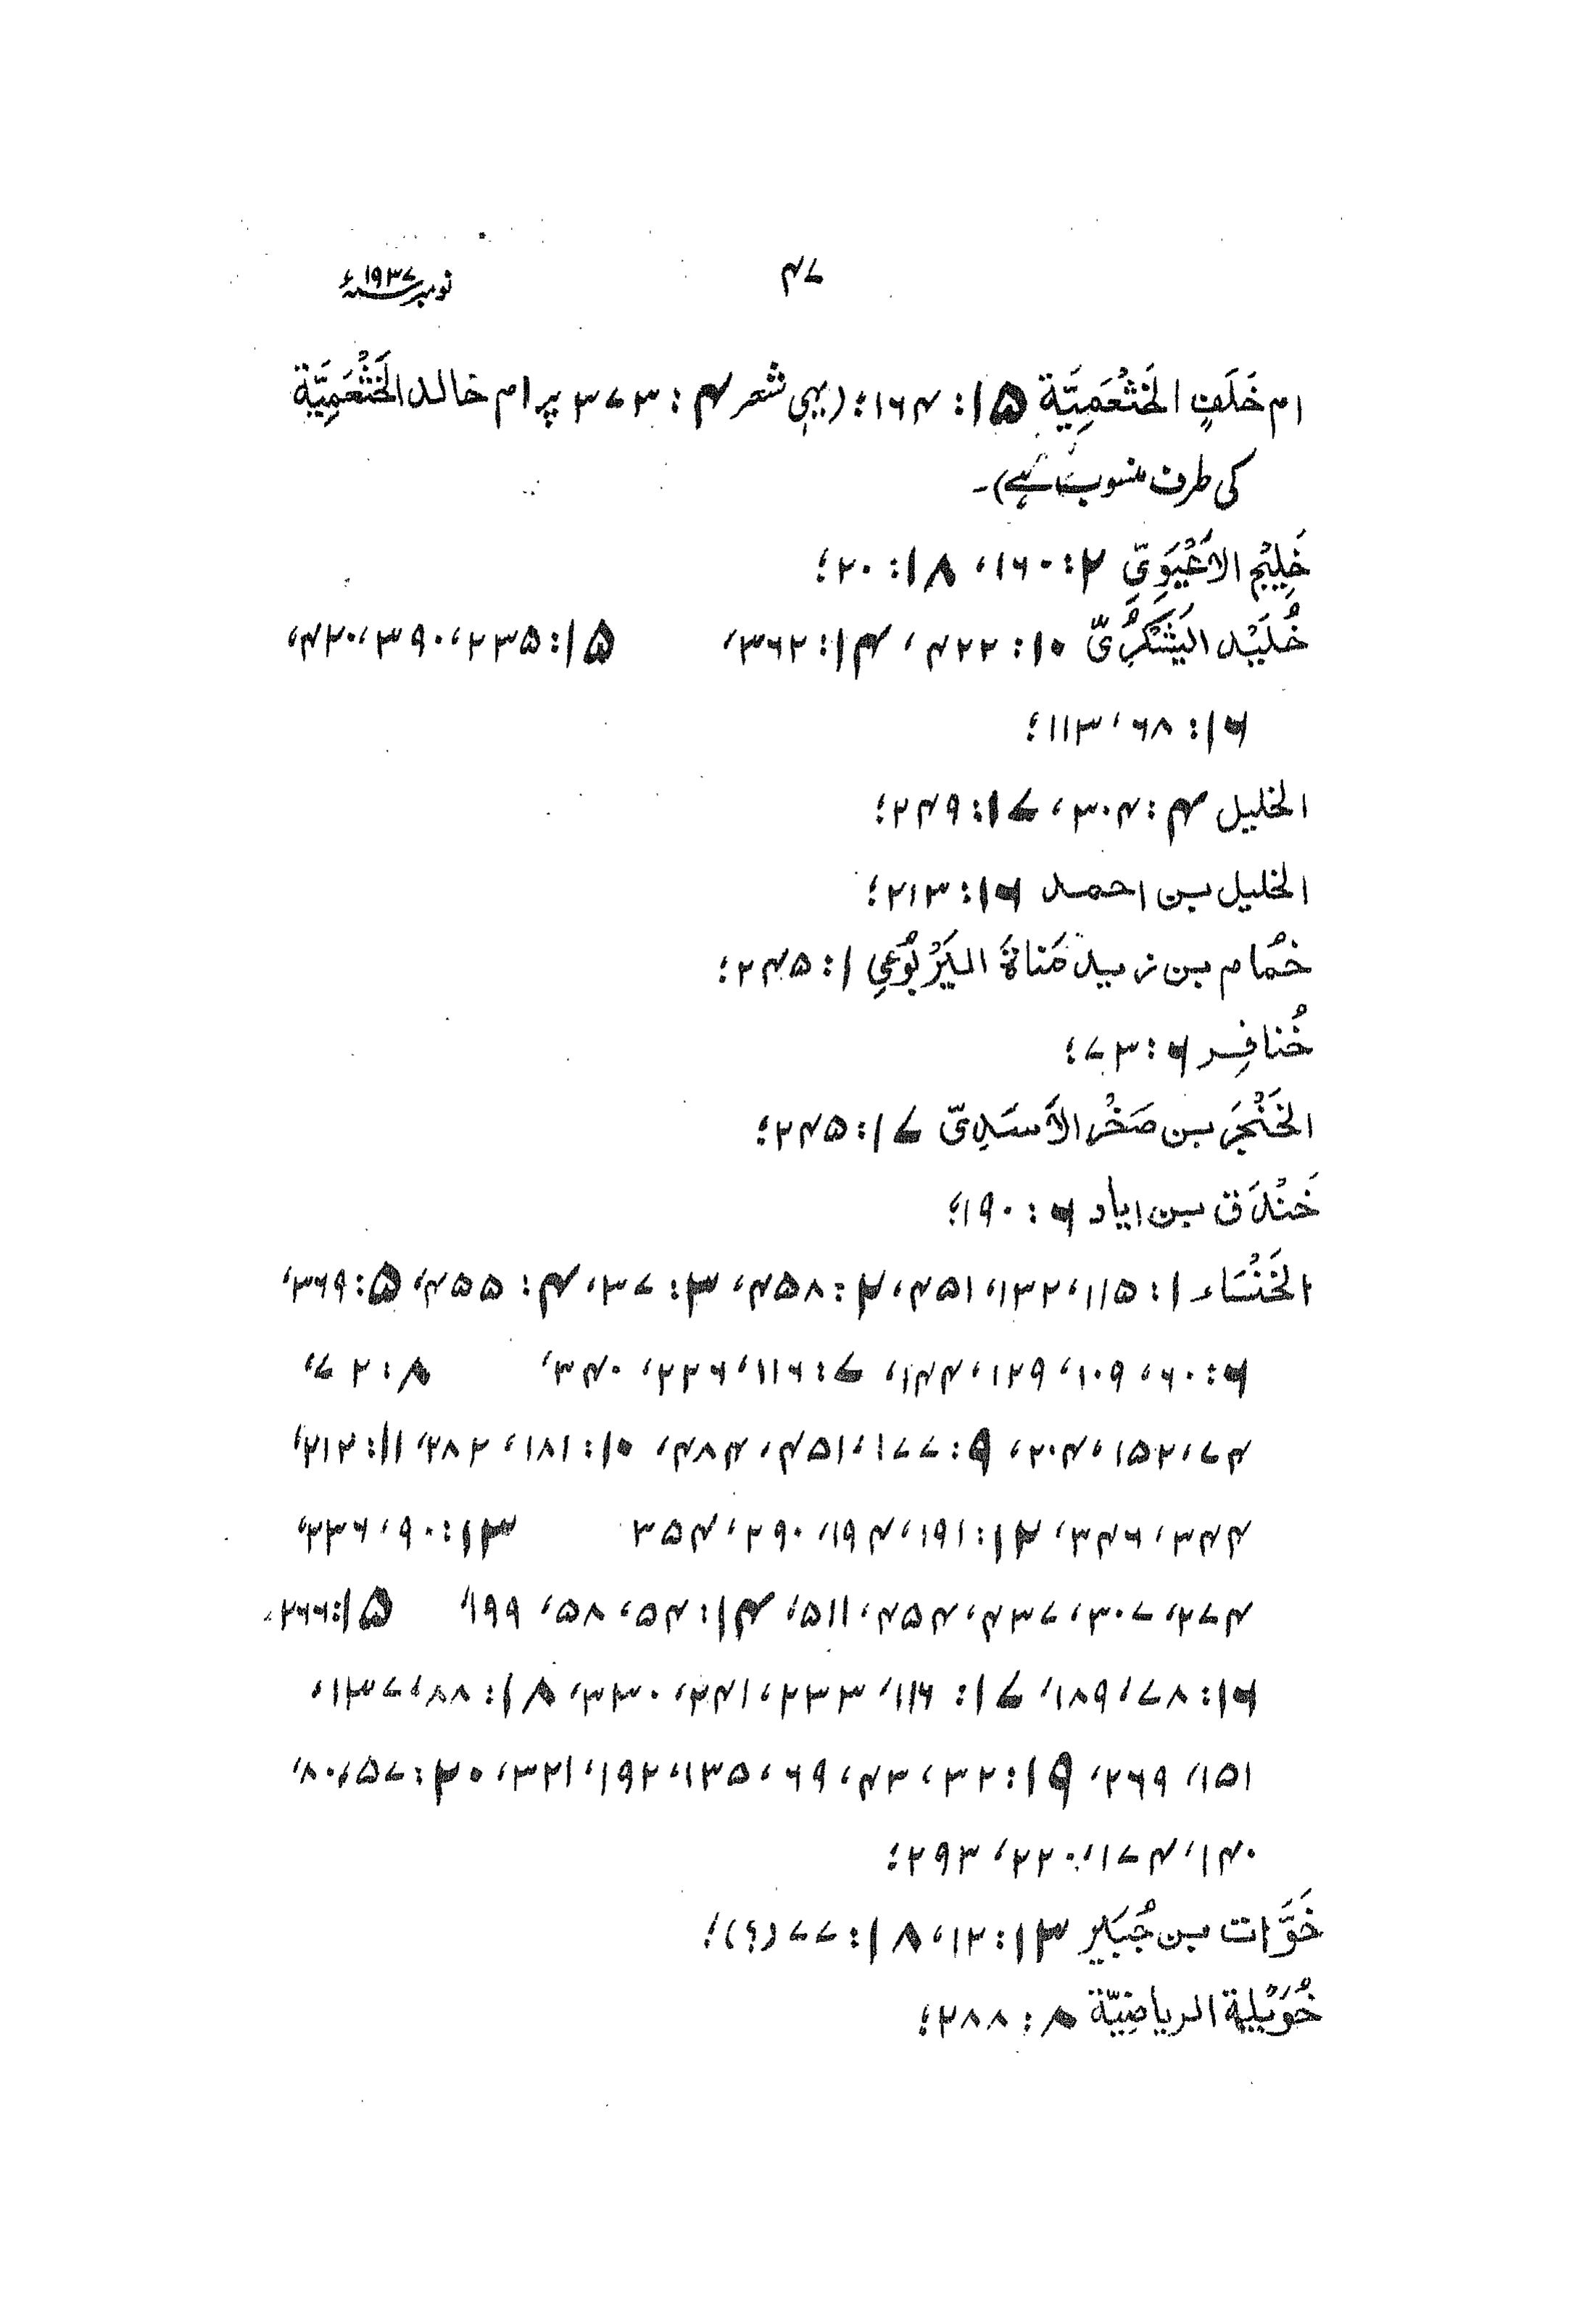 ۴۷ نومبر ۱۹۳۷ء
ام خَلَفٍ الخَثْعَمِيَّة ۱۵: ۱۶۴؛ (یہی شعر ۴: ۳۷۳ پر ام خالد الخَثْعَمِيَّة
کی طرف منسوب ہے)۔
خَلِيْج الأَعْيَوِيّ ۲: ۱۶۰، ۱۸: ۲۰؛
خُلَيْد اليَشْكُرِيّ ۱۰: ۴۲۲، ۱۴: ۳۶۲، ۱۵: ۲۳۵، ۳۹۰، ۴۲۰،
۱۶: ۶۸، ۱۱۳؛
الخليل ۴: ۳۰۴، ۱۷: ۲۴۹؛
الخليل بن احمد ۱۶: ۲۱۳؛
خُمام بن زيد مَناةَ اليَرْبُوْعِي ۱: ۲۴۵؛
خُنافِر ۶: ۷۳؛
الخَنْجَر بن صَخْر الأَسَدِيّ ۱۷: ۲۴۵؛
خَنْدَق بن اياد ۶: ۱۹۰؛
الخَنْسَاء ۱: ۱۱۵، ۱۳۲، ۴۵۱، ۲: ۴۵۸، ۳: ۳۷، ۴: ۴۵۵، ۵: ۳۶۹،
۶: ۶۰، ۱۰۹، ۱۲۹، ۱۴۴، ۷: ۱۱۶، ۲۲۶، ۳۴۰، ۸: ۷۲،
۴۷، ۱۵۲، ۲۰۴، ۹: ۱۷۷، ۴۵۱، ۴۸۴، ۱۰: ۱۸۱، ۲۸۲، ۱۱: ۲۱۲،
۳۴۴، ۳۴۶، ۱۲: ۱۹۱، ۱۹۴، ۲۹۰، ۳۵۴ ۱۳: ۹۰، ۲۳۶،
۲۷۴، ۳۰۷، ۴۳۷، ۴۵۴، ۵۱۱، ۱۴: ۵۴، ۵۸، ۱۹۹، ۱۵: ۲۶۶،
۱۶: ۷۸، ۱۸۹، ۱۷: ۱۱۶، ۲۳۳، ۲۴۱، ۳۳۰، ۱۸: ۸۸، ۱۳۷،
۱۵۱، ۲۶۹، ۱۹: ۳۲، ۴۳، ۶۹، ۱۳۵، ۱۹۲، ۳۲۱، ۲۰: ۵۷، ۸۰،
۱۴۰، ۱۷۴، ۲۲۰، ۲۹۳؛
خَوَّات بن جُبَير ۱۳: ۱۲، ۱۸: ۷۷ (؟)؛
خُوَيْلة الرياضِيَّة ۸: ۲۸۸؛